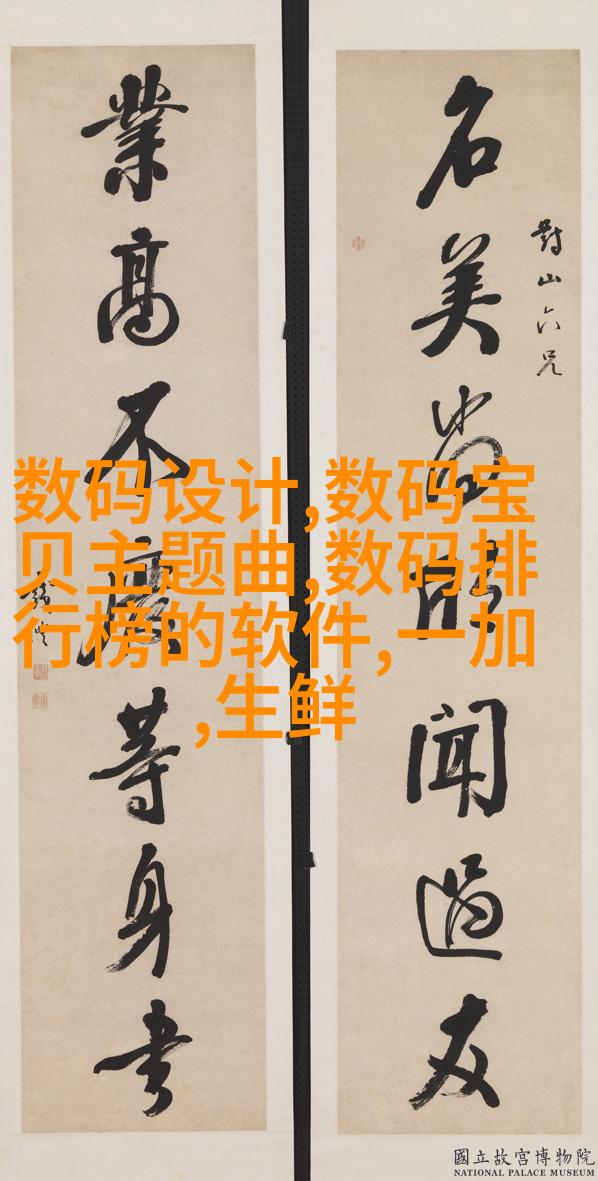 對山六兄
名美尚聞過友
業高不廢等身書
数码设计,数码宝
贝主题曲,数码排
行榜的软件,一加
,生鲜
國立故宮博物院
NATIONAL PALACE MUSEUM